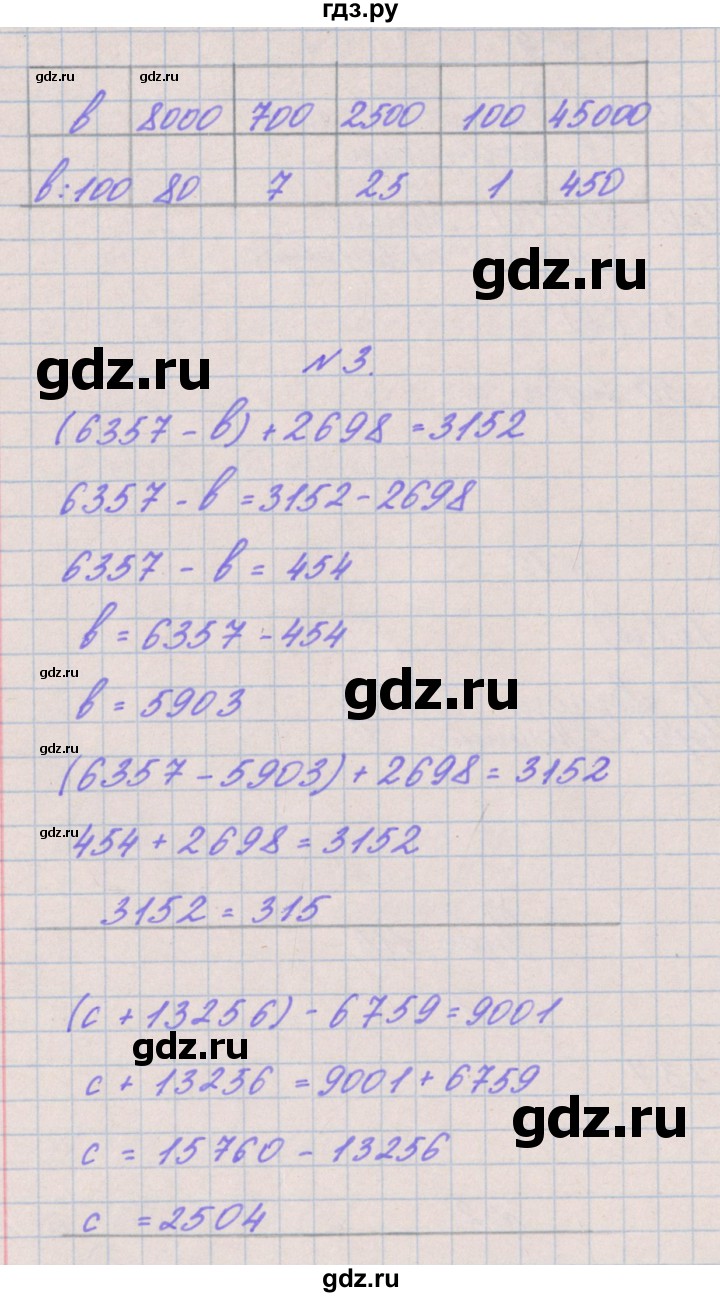 гдз.ру
gdz.ru gdz.ru
в 8000 700 2500 100 45000
в:100 80 7 25 1 450
gdz.ru
gdz.ru
№ 3.
(6357 - в) + 2698 = 3152
6357 - в = 3152 - 2698
6357 - в = 454
в = 6357 - 454
gdz.ru
в = 5903
gdz.ru
gdz.ru
(6357 - 5903) + 2698 = 3152
gdz.ru
454 + 2698 = 3152
3152 = 315
(с + 13256) - 6759 = 9001
gdz.ru
с + 13256 = 9001 + 6759
gdz.ru
с = 15760 - 13256
с = 2504
gdz.ru